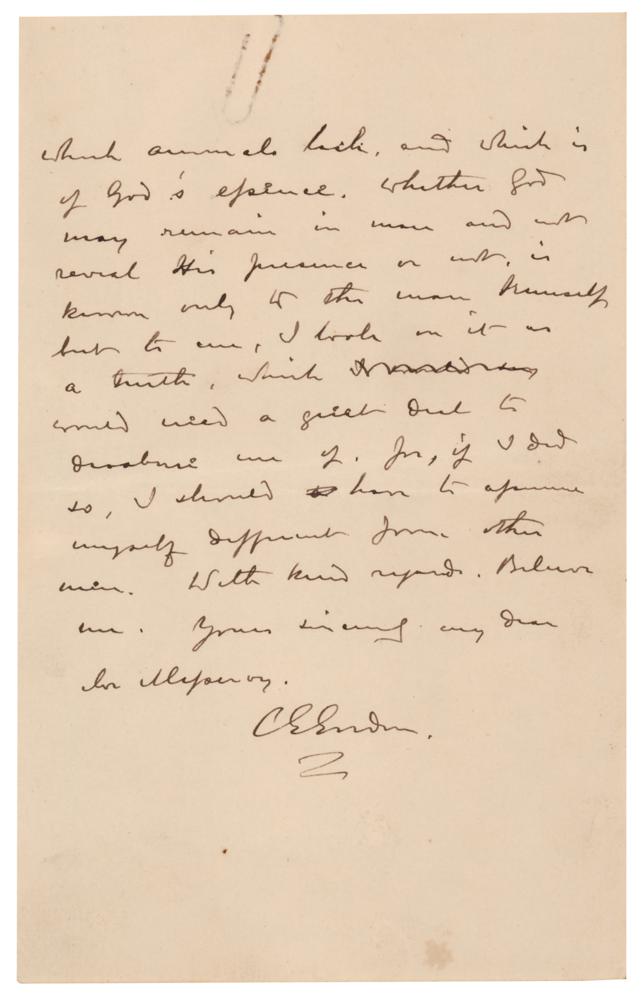 which animals lack, and which is
of God's essence. Whether God
may remain in man and not
reveal His presence or not, is
known only to the man himself
but to me, I look on it as
a truth, which
would need a great deal to
disabuse me of. for, if I did
so, I should have to assume
myself different from other
men. With kind regards. Believe
me. Yours sincerely my dear
CEGordon.